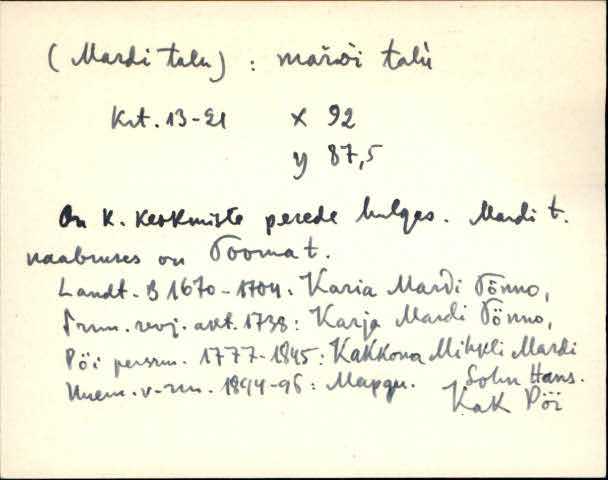 (Mardi talu) : mařdi talù
Krt. 13-21 x 92
y 87,5
On K. Keskmiste perede hulgas. Mardi t.
naabruses on Tooma t.
Landt. B 1670-1704: Karia Mardi Tönno,
Prm. revj. akt. 1738: Karja Mardi Tönno,
Pöi persrm. 1777-1845: Kakkona Mihkli Mardi
Sohn Hans.
Имен. v-rm. 1894-96: Марди.
Kak Pöi